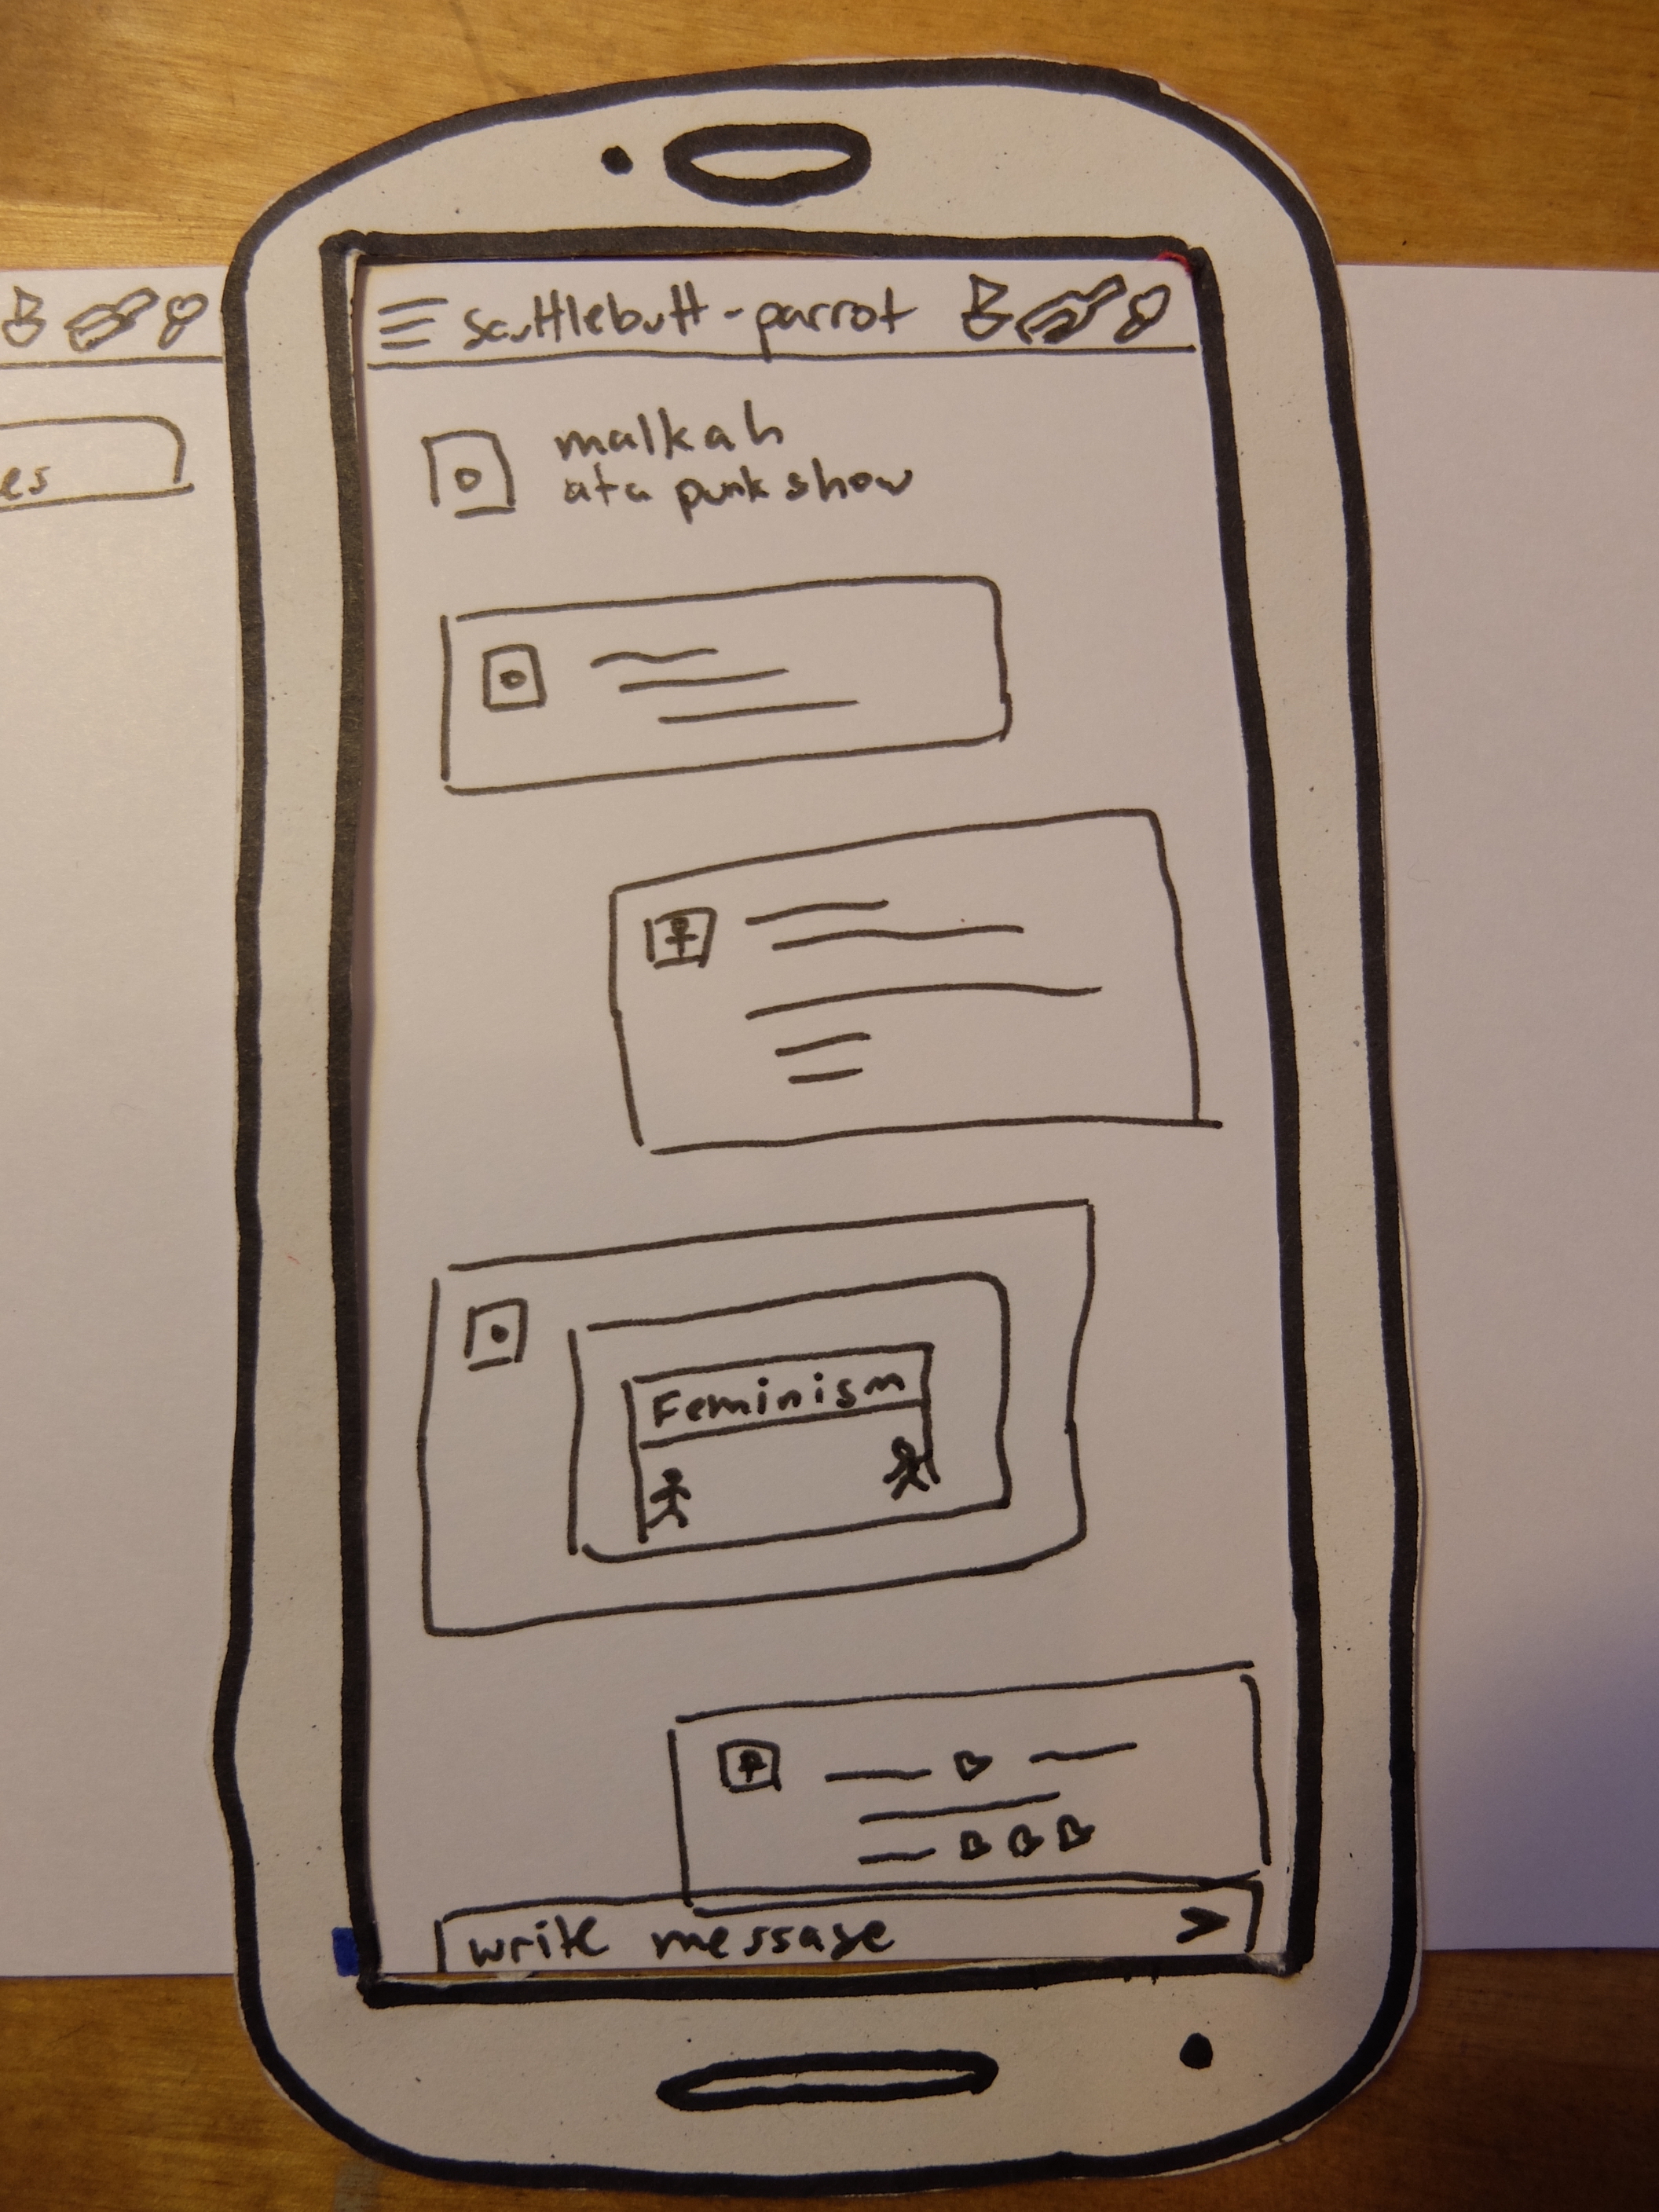 scuttlebutt-parrot
es
malkah
at a punk show
Feminism
write message >